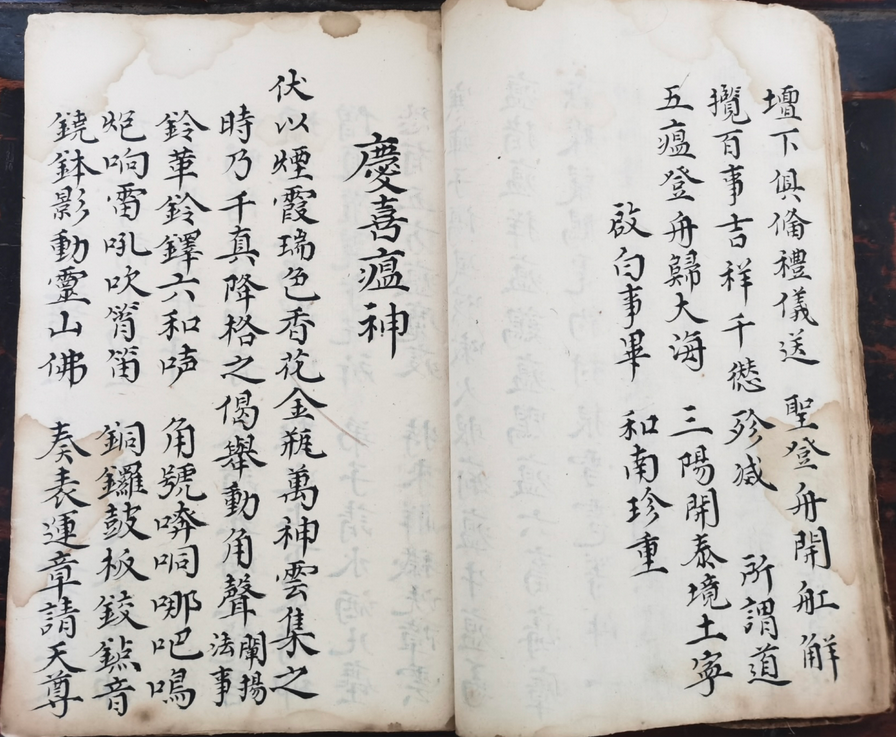 壇下俱俻禮儀送　聖登舟開舡解
攬百事吉祥千愆殄滅　所謂道
五瘟登舟歸大海　三陽開泰境土寧
啟白事畢　和南珍重
慶喜瘟神
伏以煙霞瑞色香花金瓶萬神雲集之
時乃千真降格之偈舉動角聲闡揚法事
鈴葦鈴鐸六和声　角號嗙哃哪吧鳴
炮响雷吼吹箵笛　銅鑼鼓板鉸䥑音
鐃鉢影動靈山佛　奏表運章請天尊